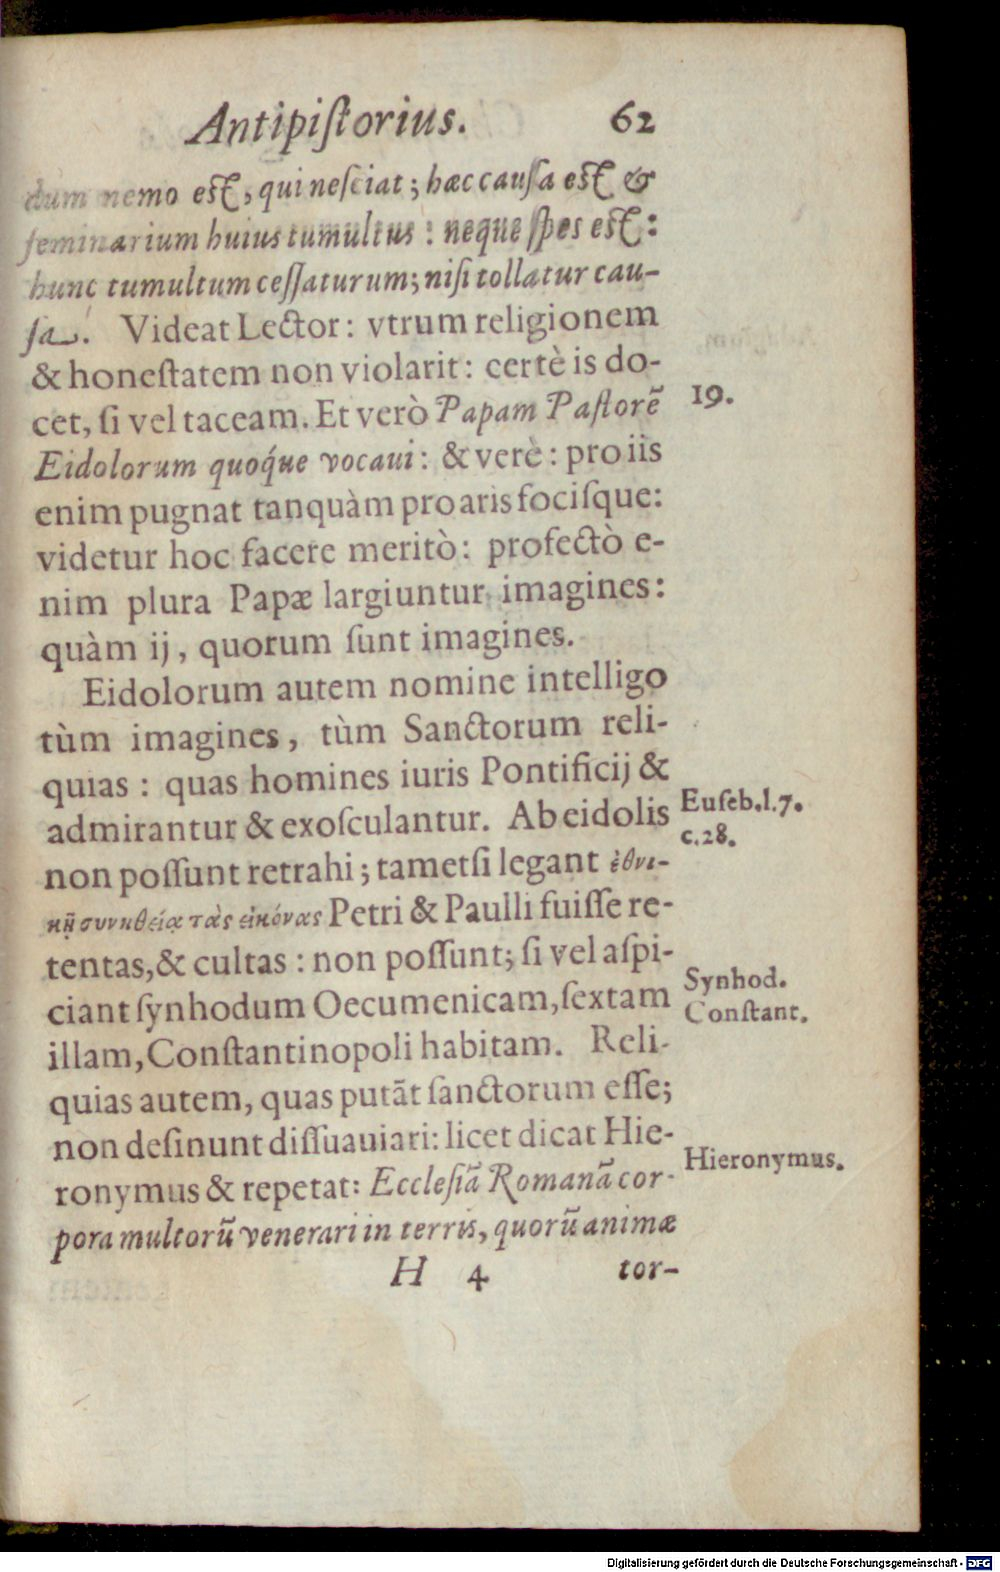 Antipiſtorius. 62
dum nemo eſt, qui neſciat; hæc cauſa eſt &
ſeminarium huius tumultus: neque ſpes eſt:
hunc tumultum ceſſaturum; niſi tollatur cau-
ſa. Videat Lector: vtrum religionem
& honeſtatem non violarit: certè is do-
cet, ſi vel taceam. Et verò Papam Paſtorẽ
19.
Eidolorum quoq́ue vocaui: & verè: pro iis
enim pugnat tanquàm pro aris fociſque:
videtur hoc facere meritò: profectò e-
nim plura Papæ largiuntur imagines:
quàm ij, quorum ſunt imagines.
Eidolorum autem nomine intelligo
tùm imagines, tùm Sanctorum reli-
quias: quas homines iuris Pontificij &
admirantur & exoſculantur. Ab eidolis
Euſeb. l. 7.
c. 28.
non poſſunt retrahi; tametſi legant ἐθνι-
κῇ συνηθείᾳ τὰς εἰκόνας Petri & Paulli fuiſſe re-
tentas, & cultas: non poſſunt; ſi vel aſpi-
ciant ſynhodum Oecumenicam, ſextam
Synhod.
Conſtant.
illam, Conſtantinopoli habitam. Reli-
quias autem, quas putãt ſanctorum eſſe;
non deſinunt diſſuauiari: licet dicat Hie-
Hieronymus.
ronymus & repetat: Eccleſiã Romanã cor-
pora multorũ venerari in terris, quorũ animæ
H 4 tor-
Digitalisierung gefördert durch die Deutsche Forschungsgemeinschaft - DFG